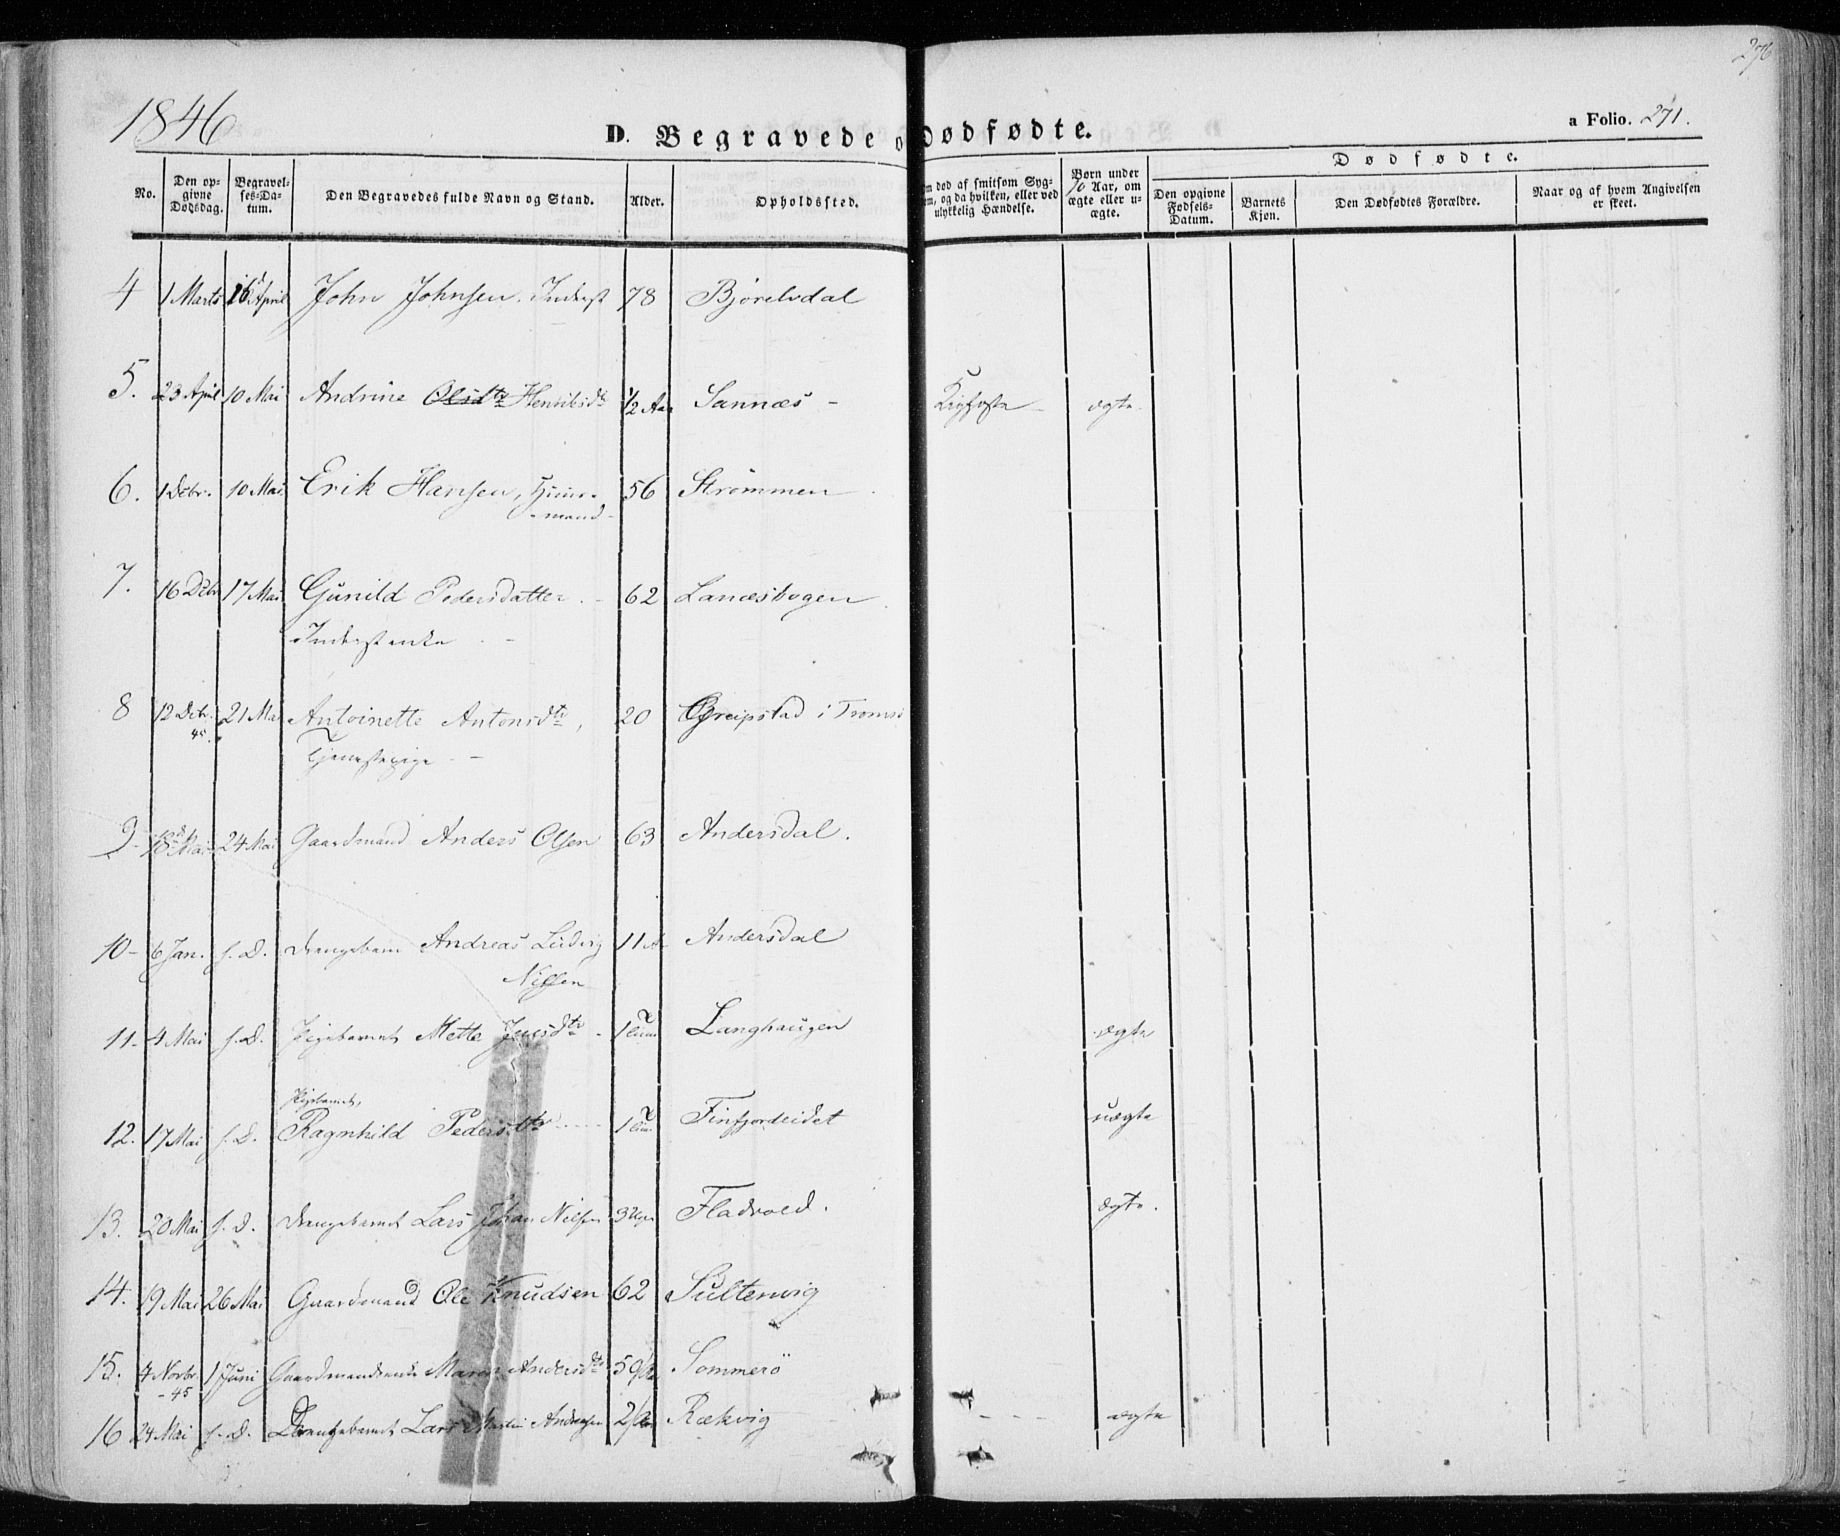 276
1846
D. Begravede o
Dødfødte.
a Folio. 271.
No.
Den op-
givne
Dødsdag.
Begravel-
ses-Da-
tum.
Den Begravedes fulde Navn og Stand.
Alder.
Opholdssted.
m død af smitsom Syg-
m, og da hvilken, eller ved
ulykkelig Hændelse.
Børn under
10 Aar, om
ægte eller u-
ægte.
Dødfødte.
Den opgivne
Fødsels-
Datum.
Barnets
Kjøn.
Den Dødfødtes Forældre.
Naar og af hvem Angivelsen
er skeet.
4 1 Marts 16 April John Johnsen. Inderst 78 Bjørelvdal
5. 23 April 10 Mai Andrine Olsdtr Henriksdtr 1/2 Aar Sannæs - ægte.
6. 1 Dcbr. 10 Mai Erik Hansen, Huus- 56 Strømmen
mand -
7. 16 Dcbr 17 Mai Gunild Pedersdatter. - 62 Lanæsbogen
Inderstenke -
8 12 Dcbr. 21 Mai Antoinette Antonsdtr, 20 Greipstad i Tromsø
45. Tjenestepige - -
9- 18de Mai 24 Mai Gaardmand Anders Olsen 63 Andersdal.
10- 6 Jan. s. D. Drengebarn Andreas Ludvig 11 Aar Andersdal
Nilssen
11- 4 Mai s. D. Pigebarnet Mette Jensdtr - Langhaugen ægte
Pigebarnet,
12. 17 Mai s. D. Ragnhild Pedersdtr Finfjordeidet uægte
13. 20 Mai s. D. Drengebarnet Lars Johan Nilsen 3 Uger Fladvold. ægte.
14. 19 Mai 26 Mai Gaardmand Ole Knudsen 62 Sultenvig
15. 4 Novbr. 1 Juni Gaardmandsenke Maren Andersdtr Sommerø
-45
16 24 Mai s. D. Drengebarnet Lars Martin Andreasen Rækvig - - - ægte